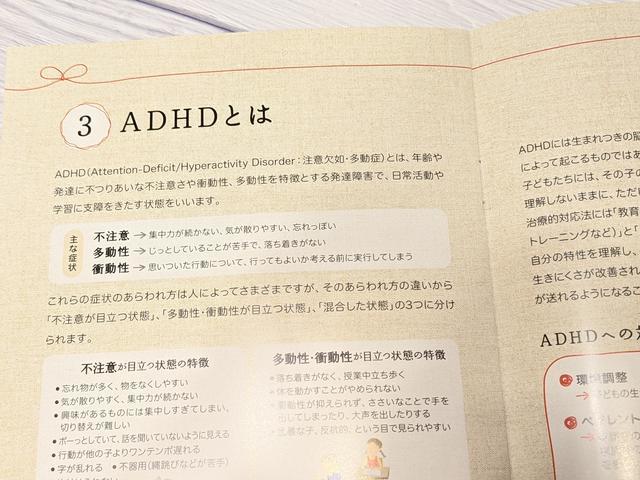 3 ADHDとは
ADHD(Attention-Deficit/Hyperactivity Disorder：注意欠如・多動症)とは、年齢や
発達に不つりあいな不注意さや衝動性、多動性を特徴とする発達障害で、日常活動や
学習に支障をきたす状態をいいます。
主な症状
不注意 → 集中力が続かない、気が散りやすい、忘れっぽい
多動性 → じっとしていることが苦手で、落ち着きがない
衝動性 → 思いついた行動について、行ってもよいか考える前に実行してしまう
これらの症状のあらわれ方は人によってさまざまですが、そのあらわれ方の違いから
「不注意が目立つ状態」、「多動性・衝動性が目立つ状態」、「混合した状態」の3つに分け
られます。
不注意が目立つ状態の特徴
●忘れ物が多く、物をなくしやすい
●気が散りやすく、集中力が続かない
●興味があるものには集中しすぎてしまい、
切り替えが難しい
●ボーっとしていて、話を聞いていないように見える
●行動が他の子よりワンテンポ遅れる
●字が乱れる ●不器用(縄跳びなどが苦手)
多動性・衝動性が目立つ状態の特徴
●落ち着きがなく、授業中立ち歩く
●体を動かすことがやめられない
●衝動性が抑えられず、ささいなことで手を
出してしまったり、大声を出したりする
●乱暴な子、反抗的、という目で見られやすい
ADHDには生まれつきの脳
によって起こるものではあ
子どもたちには、その子の
理解しないままに、ただ
治療的対応法には「教育
トレーニングなど)」と「
自分の特性を理解し、
生きにくさが改善され
が送れるようになるこ
ADHDへの
環境調整
子どもの生
ペアレント